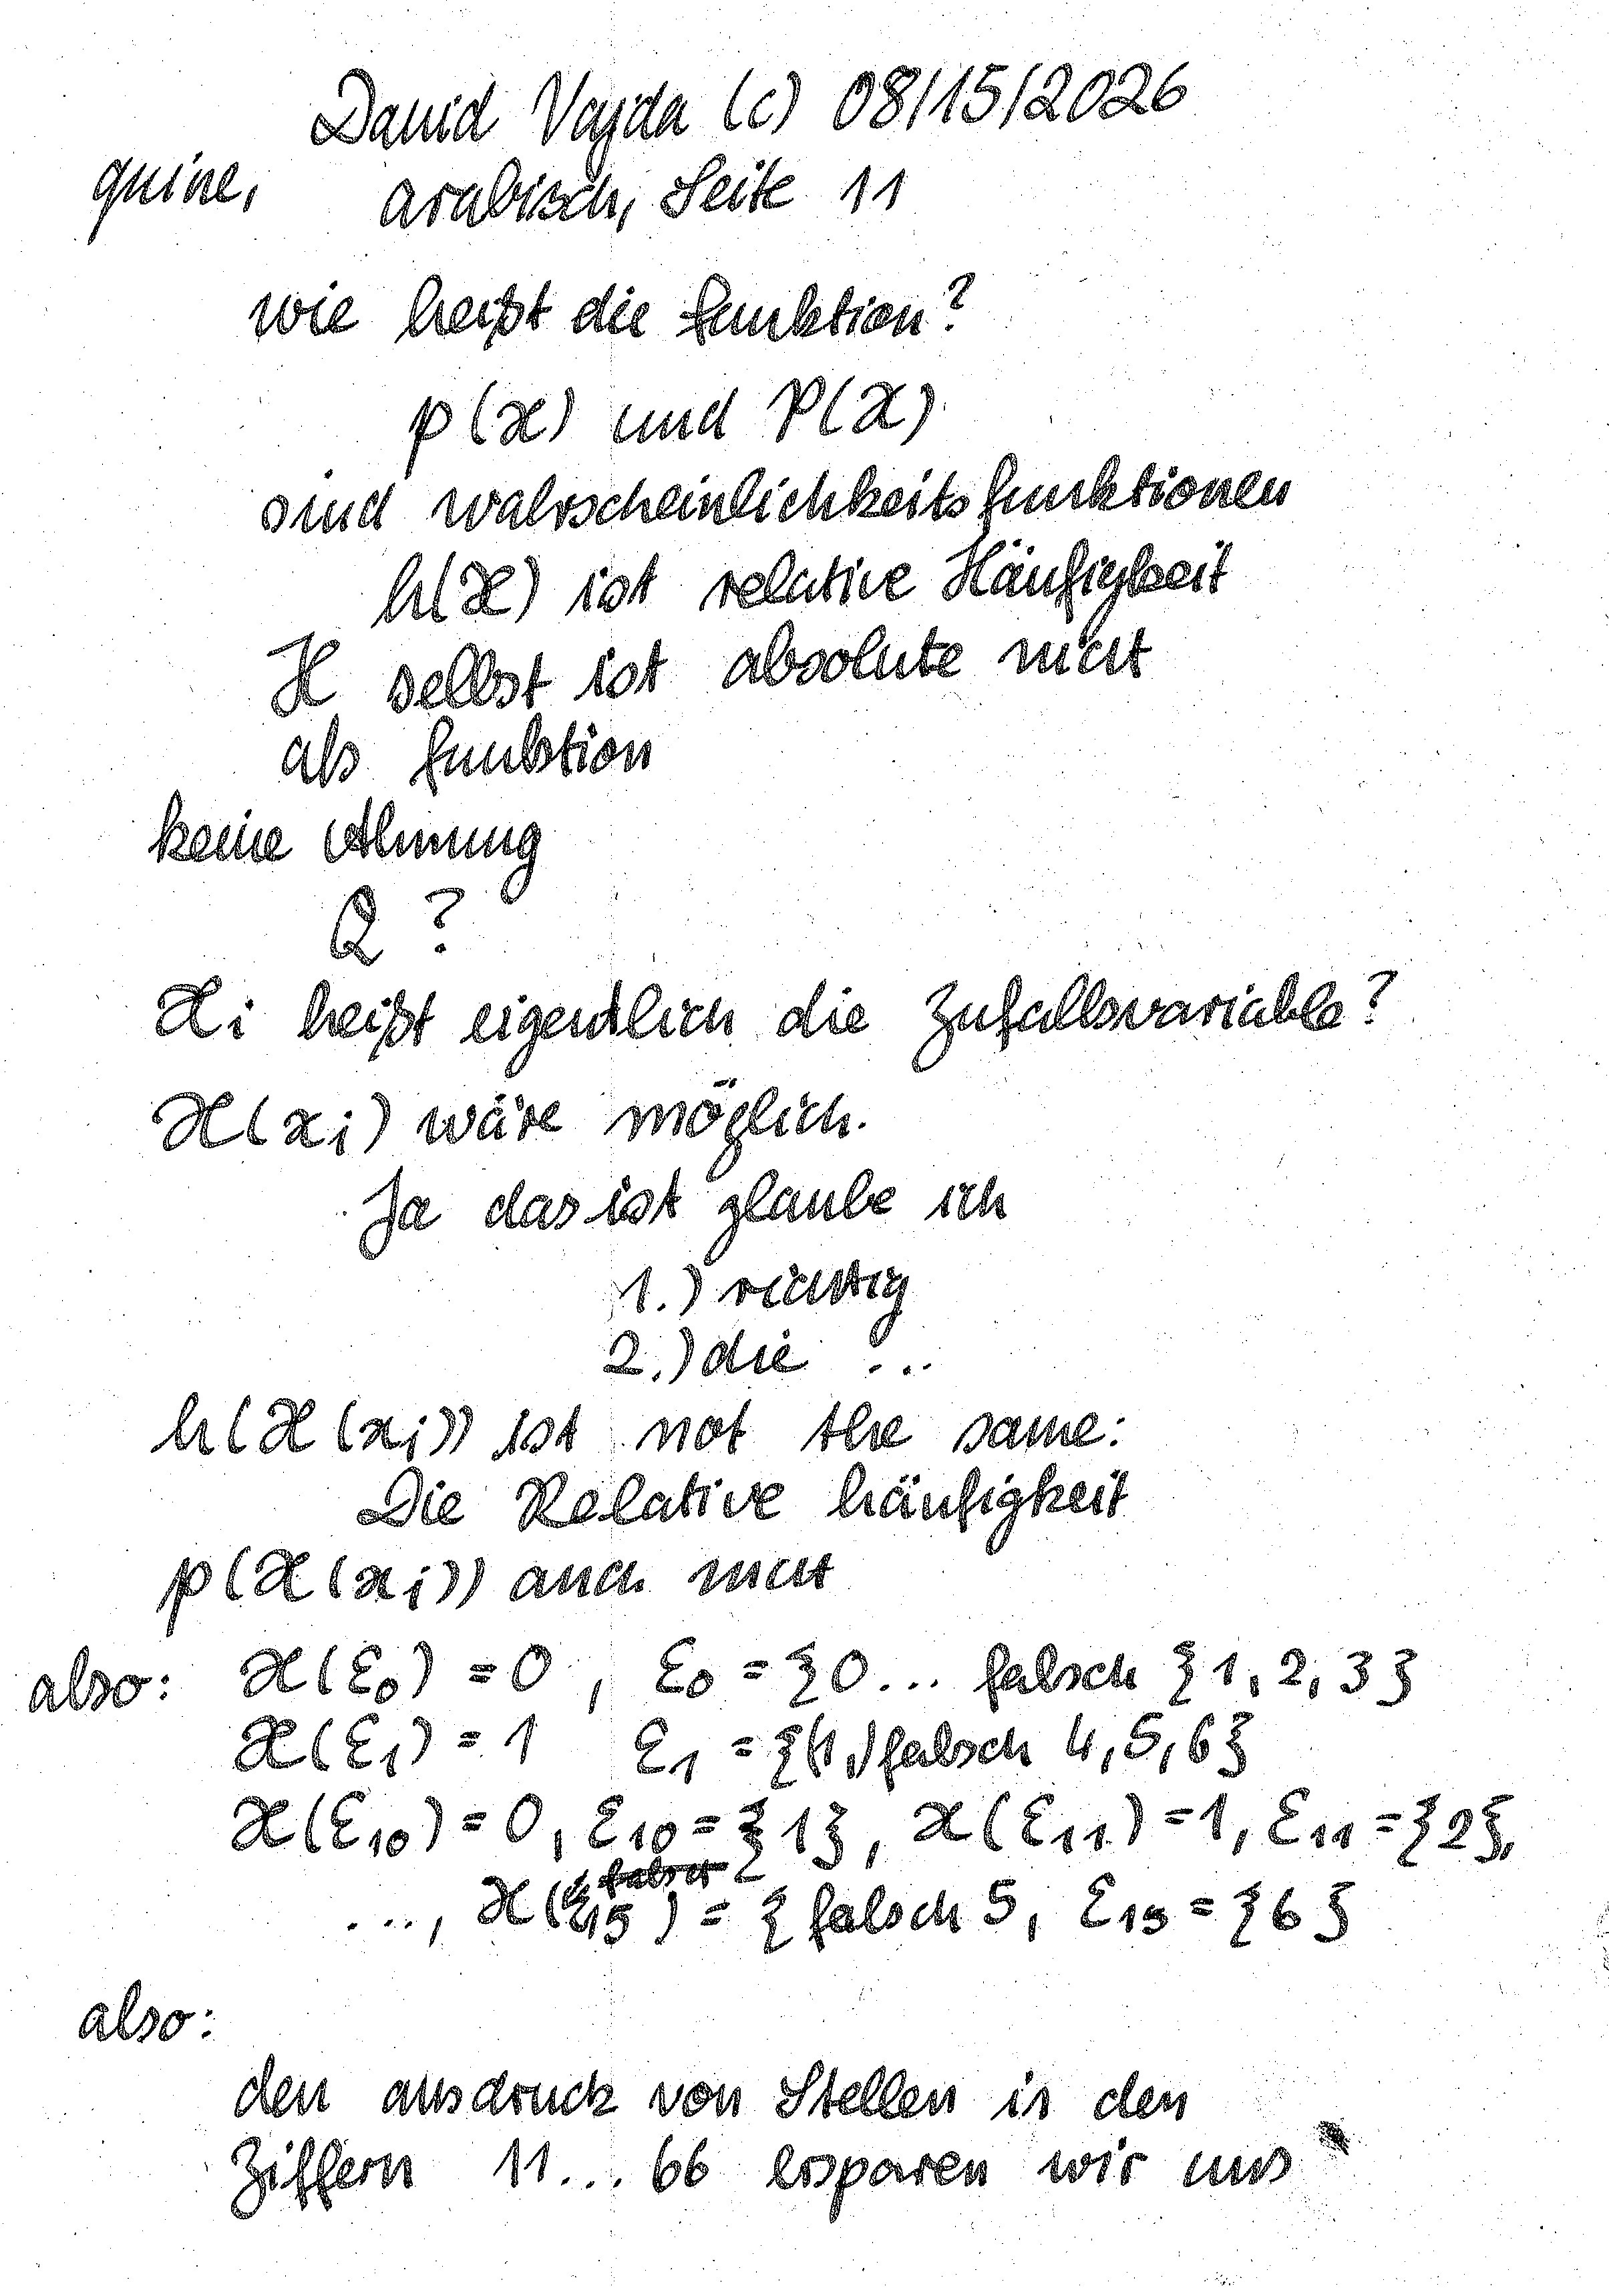 David Vajda (c) 08/15/2026
quine, arabisch, Seite 11
wie heißt die funktion?
p(X) und P(X)
sind wahrscheinlichkeitsfunktionen
h(X) ist relative Häufigkeit
H selbst ist absolute nicht
als funktion
keine Ahnung
Q ?
Xi heißt eigentlich die Zufallsvariable?
X(xi) wäre möglich.
Ja das ist glaube ich
1.) richtig
2.) die ...
h(X(xi)) ist not the same:
Die Relative häufigkeit
p(X(xi)) auch nicht
also: X(Ɛ0) = 0, Ɛ0 = {0... falsch {1, 2, 3}
X(Ɛ1) = 1 Ɛ1 = {(1,) falsch 4, 5, 6}
X(Ɛ10) = 0, Ɛ10 = {1}, X(Ɛ11) = 1, Ɛ11 = {2},
falsch
..., X(Ɛ15) = { falsch 5, Ɛ15 = {6}
also:
den ausdruck von Stellen in den
Ziffern 11... 66 ersparen wir uns